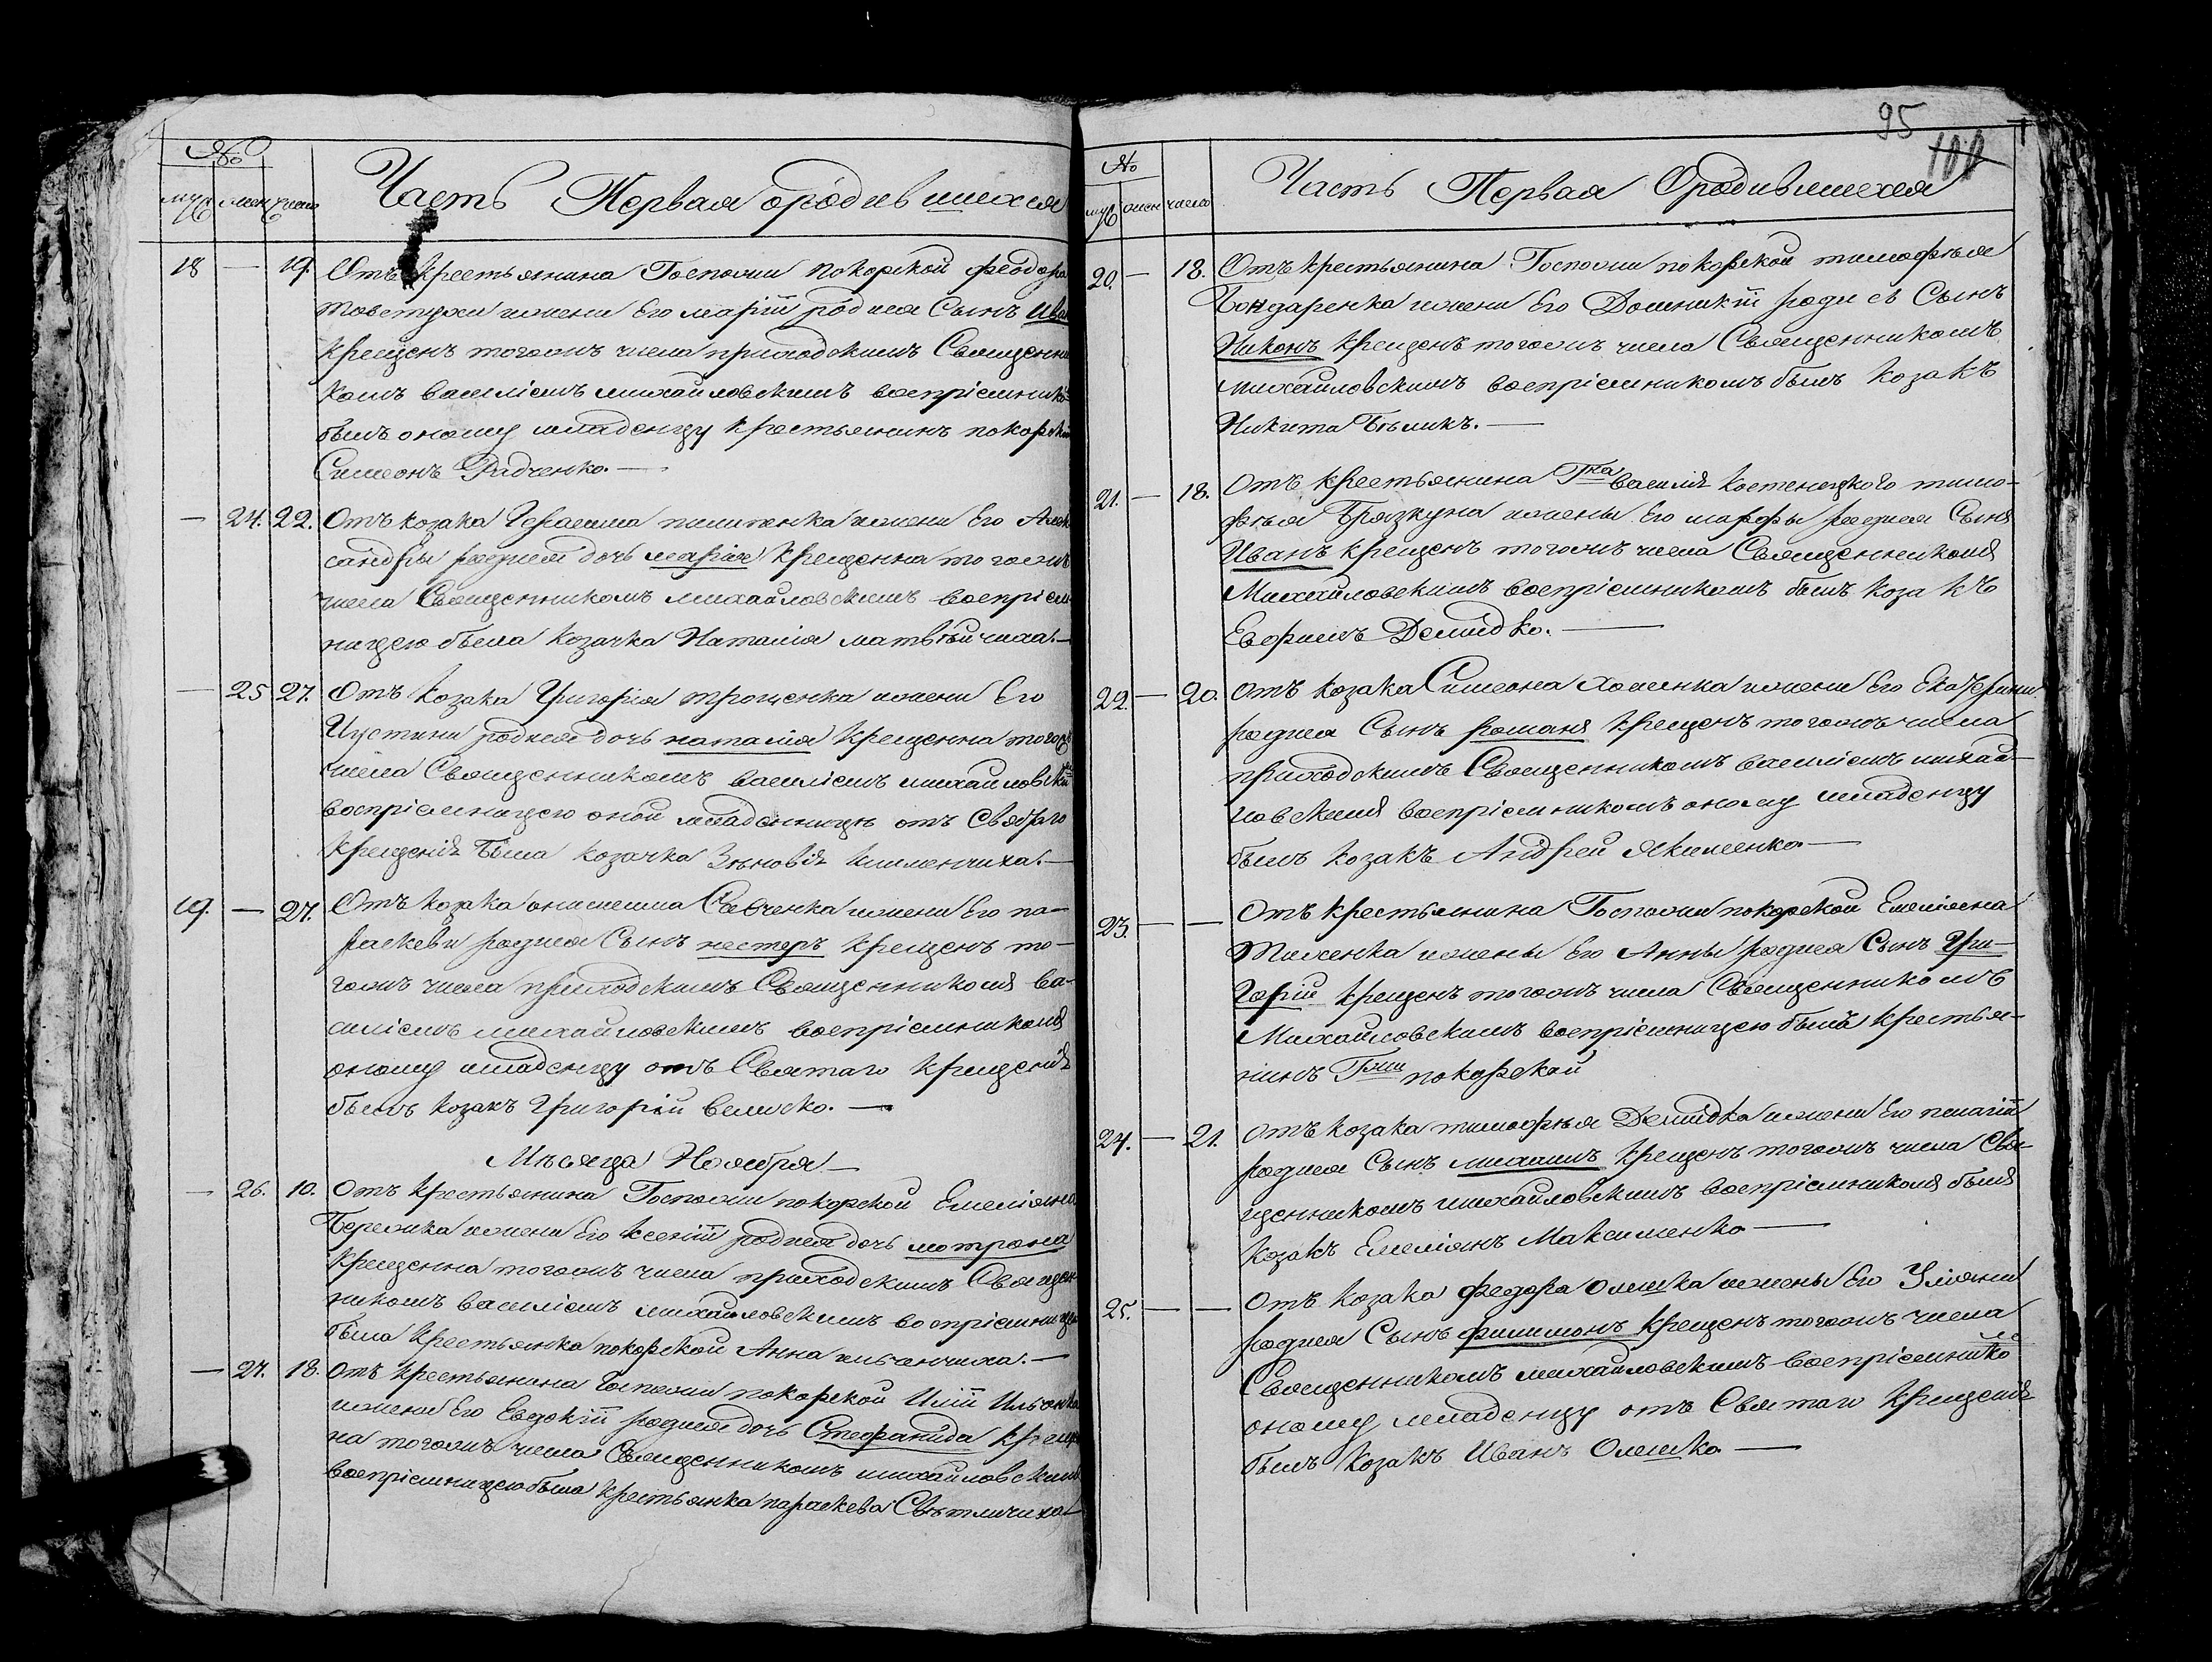 №
муж жен число
Часть Первая о родившихся
18 — 19. Отъ крестьянина Госпожи покорской Феодора
товстухи жены его маріи родися Сынъ Ива
крещенъ тогожъ числа приходскимъ Священни
комъ василіемъ михайловскимъ воспріемнико
былъ оному младенцу крестьянинъ покорской
Симеонъ Радченко. —
— 24. 22. Отъ козака Герасима пилипенка жены Его Алек
сандры родися дочь марія крещенна тогожъ
числа Священникомъ михайловскимъ воспріем
ницею была козачка Наталія матвѣйчиха. —
— 25 27. Отъ козака Григорія троценка жены Его
Иустини родися дочь наталія крещенна тогожъ
числа Священникомъ василіемъ михайловски
воспріемницею оной младенницѣ отъ Святаго
крещенія была козачка Зѣновія климен­чиха. —
19. — 27. Отъ козака онисима Савченка жены Его па-
раскеви родися Сынъ нестеръ крещенъ то-
гожъ числа приходскимъ Священникомъ ва-
силіемъ михайловскимъ воспріемникомъ
оному младенцу отъ Святаго крещенія
былъ козакъ Григорій велиско. —
Мѣсяца Ноября —
— 26. 10. Отъ крестьянина Госпожи покорской Емеліяна
Бережка жены Его ксеніи родися дочь мотрона
крещенна тогожъ числа приходскимъ Священ
никомъ василіемъ михайловскимъ воспріемницею
была крестьянка покорской Анна ильенчиха. —
— 27. 18. Отъ крестьянина Госпожи покорской Иліи Ильенка
жены Его Евдокіи родися дочь Стефанида креще
на тогожъ числа Священникомъ михайловскимъ
воспріемницею была крестьянка параскева Свѣтличиха
95
100
№
муж жен число
Часть Первая О родившихся
20. — 18. Отъ крестьянина Госпожи покорской тимофѣя
Бондаренка жены Его Домникіи родися Сынъ
Никонъ крещенъ тогожъ числа Священникомъ
михайловскимъ воспріемникомъ былъ козакъ
Никита Бѣликъ. —
21. — 18. Отъ крестьянина Гна василія костенецкого тимо-
фѣя Брязкуна жены Его марфы родися Сынъ
Иванъ крещенъ тогожъ числа Священникомъ
Михайловскимъ воспріемникомъ былъ козакъ
Евфимъ Демидко. —
22. — 20. Отъ козака Симеона хоменка жены Его Екатерины
родися Сынъ романъ крещенъ тогожъ числа
приходскимъ Священникомъ василіемъ михай-
ловскимъ воспріемникомъ оному младенцу
былъ козакъ Андрей якименко. —
23. — — Отъ крестьянина Госпожи покорской Емеліяна
Тименка жены Его Анны родися Сынъ Гри-
горій крещенъ тогожъ числа Священникомъ
Михайловскимъ воспріемницею былъ крестья-
нинъ Гжи покорской
24. — 21. Отъ козака тимофѣя Демидка жены Его пелагіи
родися Сынъ михаилъ крещенъ тогожъ числа Свя-
щенникомъ михайловскимъ воспріемникомъ былъ
козакъ Емеліянъ Максименко —
25. — — Отъ козака Федора Олешка жены Его Уляны
родися Сынъ филимонъ крещенъ тогожъ числа
Священникомъ михайловскимъ воспріемнико
оному младенцу отъ Святаго крещенія
былъ козакъ Иванъ Олешко —